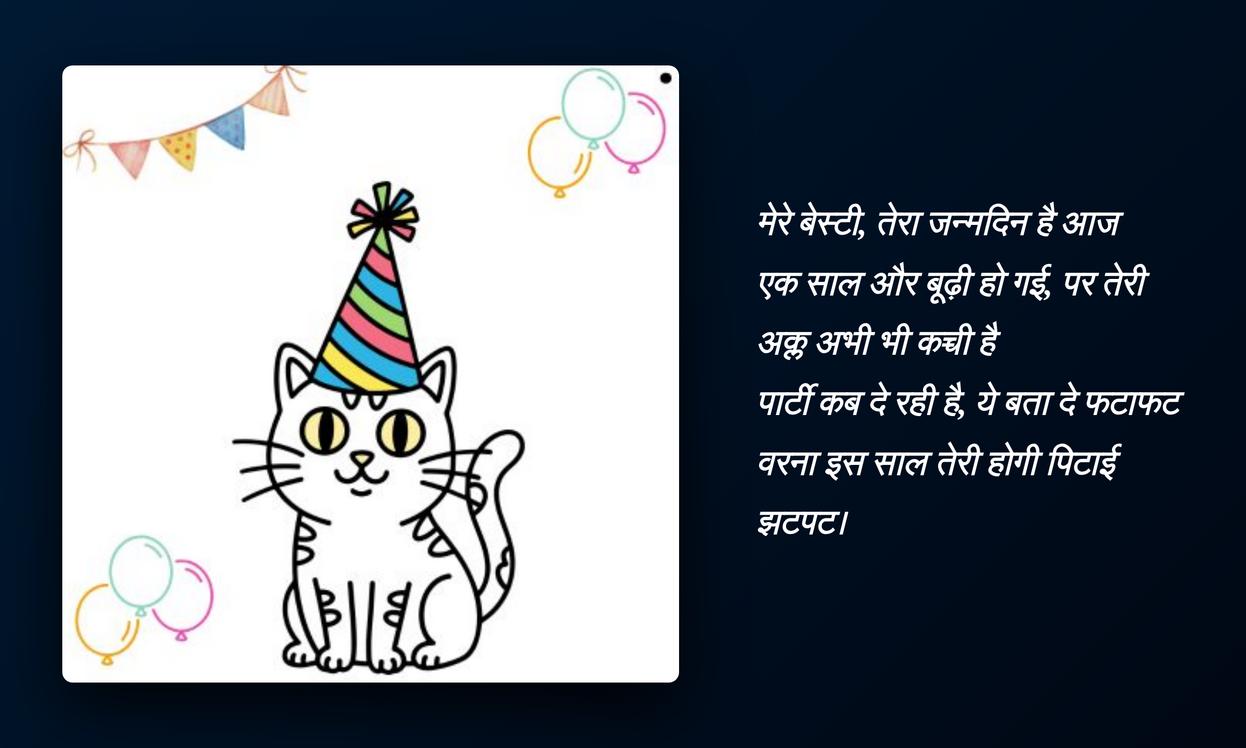 मेरे बेस्टी, तेरा जन्मदिन है आज
एक साल और बूढ़ी हो गई, पर तेरी
अक्ल अभी भी कच्ची है
पार्टी कब दे रही है, ये बता दे फटाफट
वरना इस साल तेरी होगी पिटाई
झटपट।